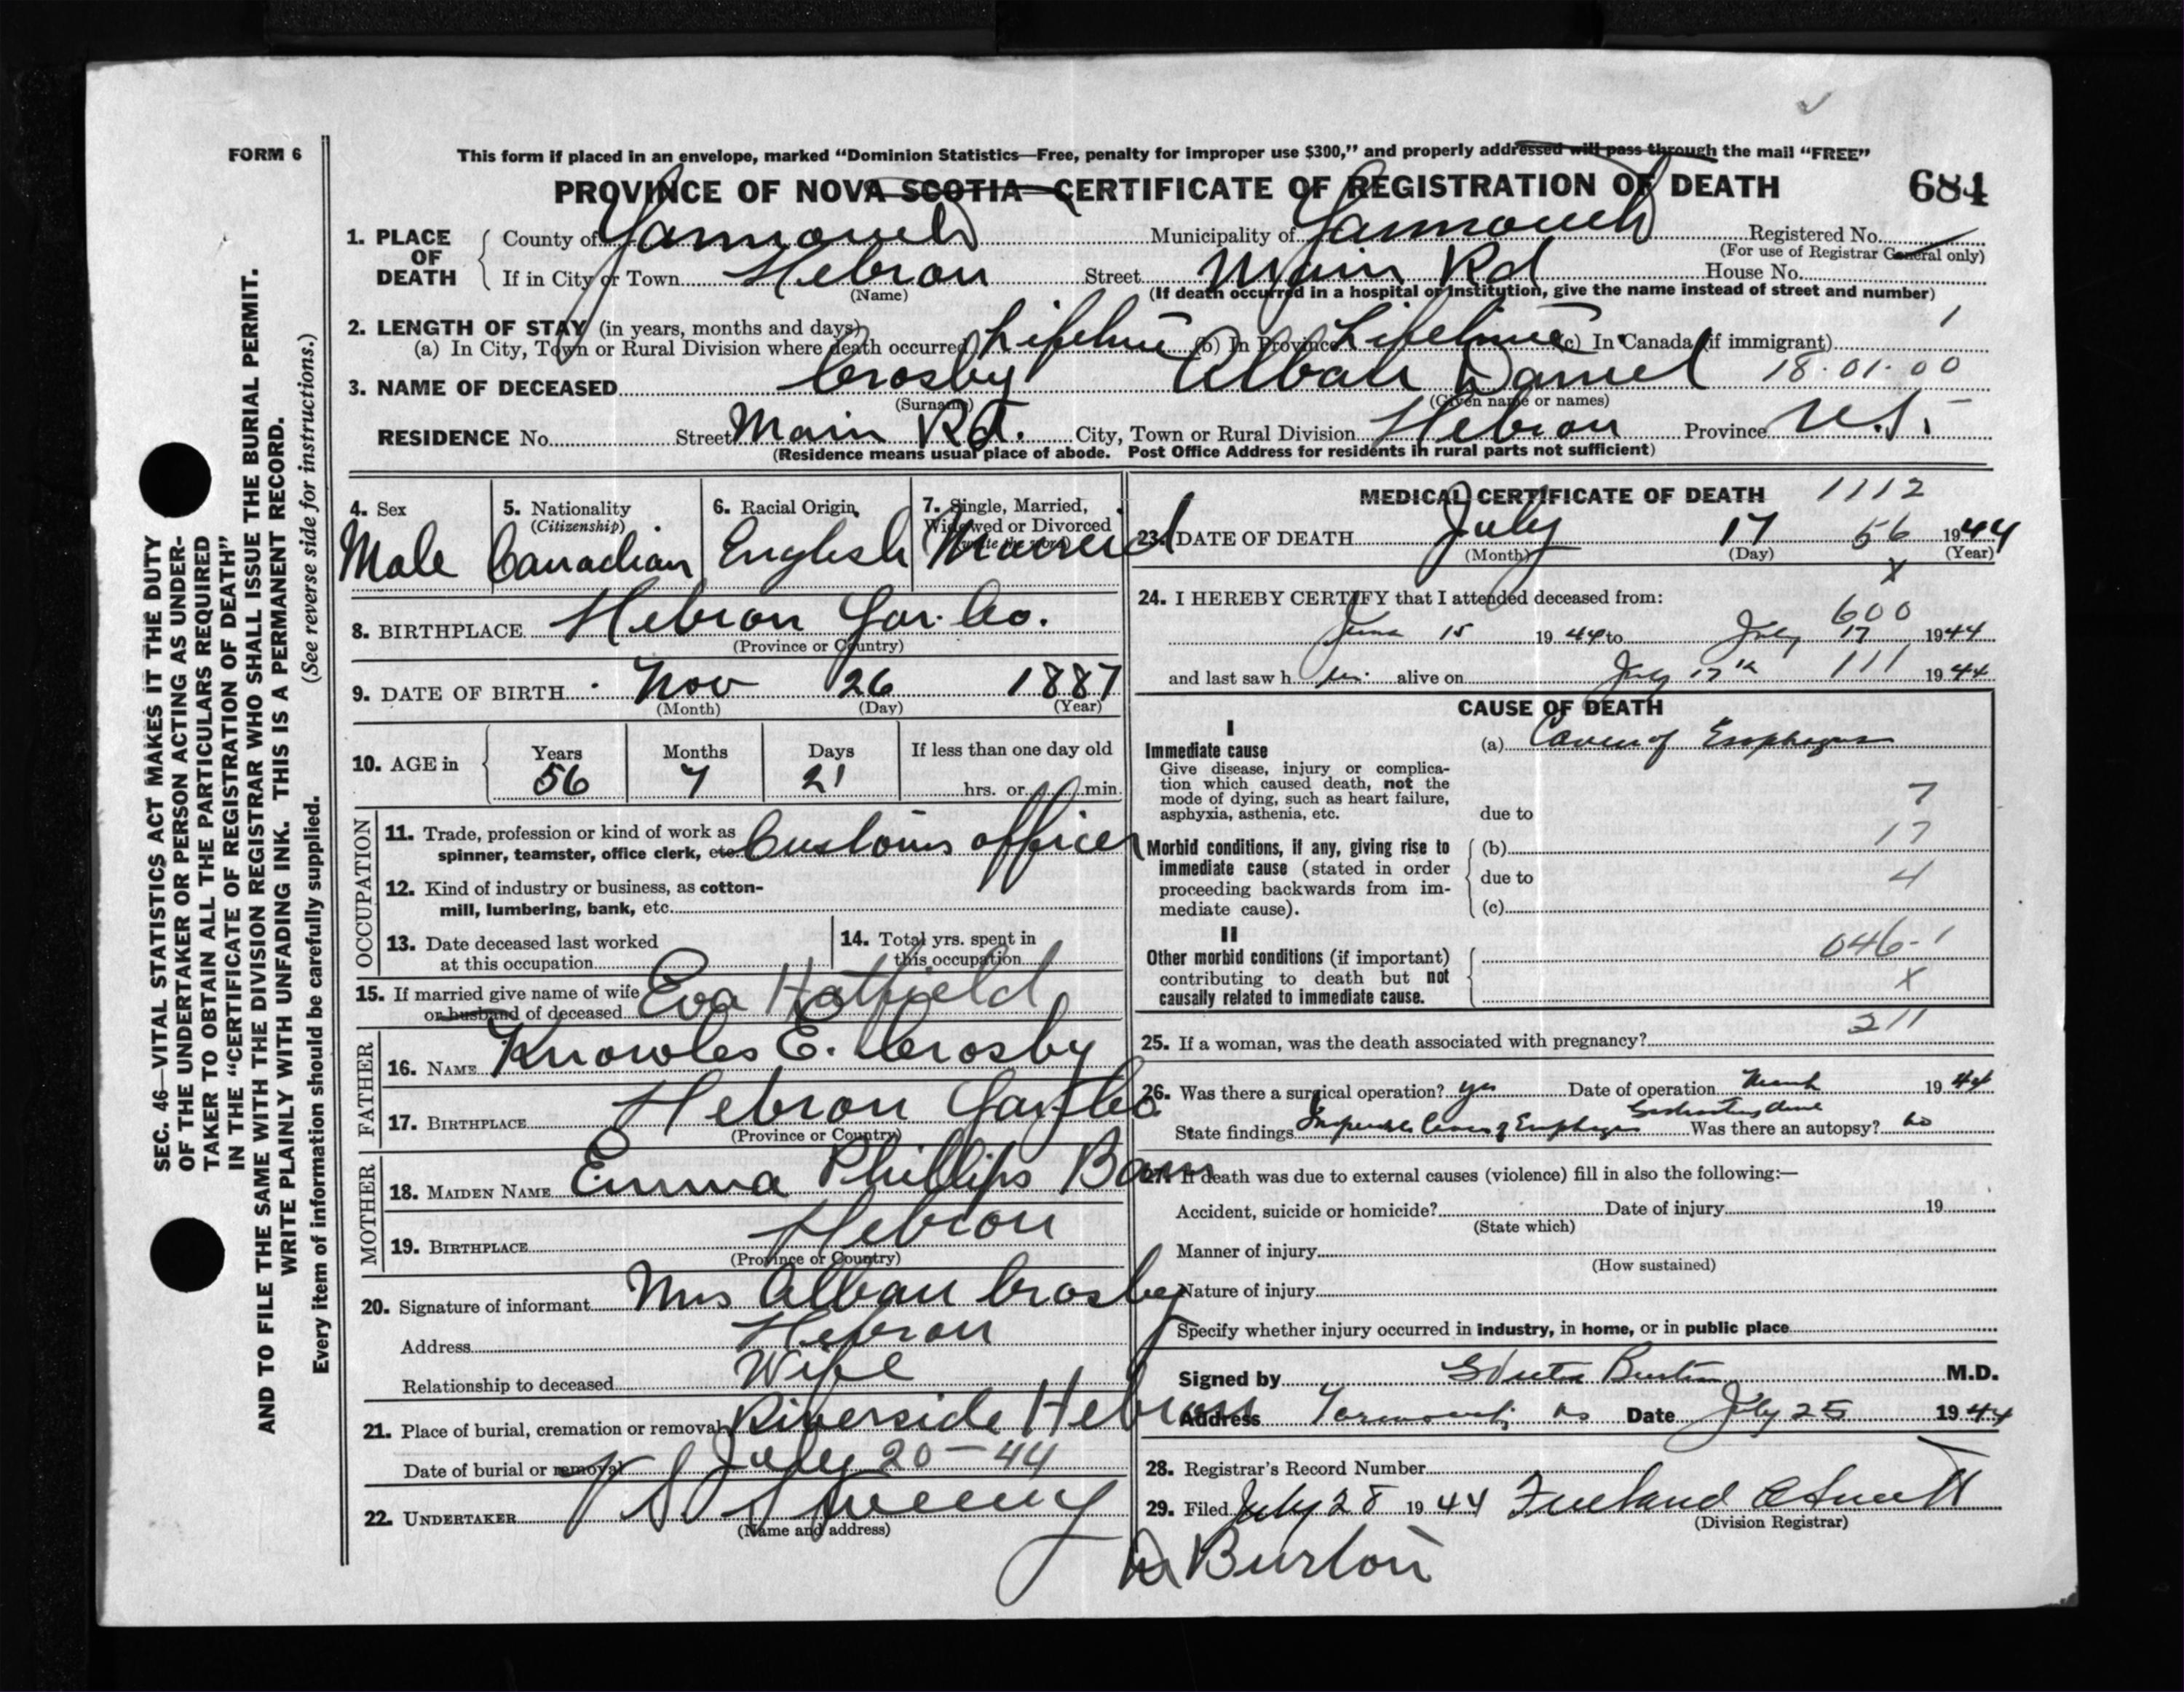 FORM 6
This form if placed in an envelope, marked “Dominion Statistics—Free, penalty for improper use $300,” and properly addressed will pass through the mail “FREE”
PROVINCE OF NOVA SCOTIA—CERTIFICATE OF REGISTRATION OF DEATH 684
1. PLACE OF DEATH County of Yarmouth Municipality of Yarmouth Registered No.
(For use of Registrar General only)
If in City or Town Hebron Street Main Rd House No.
(Name) (If death occurred in a hospital or institution, give the name instead of street and number)
2. LENGTH OF STAY (in years, months and days) 1
(a) In City, Town or Rural Division where death occurred Lifetime (b) In Province Lifetime (c) In Canada (if immigrant)
3. NAME OF DECEASED Crosby Alban Daniel 18·01·00
(Surname) (Given name or names)
RESIDENCE No. Street Main Rd. City, Town or Rural Division Hebron Province N.S.
(Residence means usual place of abode. Post Office Address for residents in rural parts not sufficient)
4. Sex Male
5. Nationality (Citizenship) Canadian
6. Racial Origin English
7. Single, Married, Widowed or Divorced (write the word) Married
8. BIRTHPLACE Hebron Yar. Co.
(Province or Country)
9. DATE OF BIRTH Nov 26 1887
(Month) (Day) (Year)
10. AGE in Years 56 Months 7 Days 21 If less than one day old
hrs. or min.
OCCUPATION
11. Trade, profession or kind of work as spinner, teamster, office clerk, etc. Customs officer
12. Kind of industry or business, as cotton-mill, lumbering, bank, etc.
13. Date deceased last worked at this occupation
14. Total yrs. spent in this occupation
15. If married give name of wife or husband of deceased Eva Hatfield
FATHER
16. NAME Knowles E. Crosby
17. BIRTHPLACE Hebron Yar. Co.
(Province or Country)
MOTHER
18. MAIDEN NAME Emma Phillips
19. BIRTHPLACE Hebron
(Province or Country)
20. Signature of informant Mrs Alban Crosby
Address Hebron
Relationship to deceased Wife
21. Place of burial, cremation or removal Riverside Hebron
Date of burial or removal July 20 – 44
22. UNDERTAKER V S Sweeny
(Name and address)
MEDICAL CERTIFICATE OF DEATH 1112
23. DATE OF DEATH July 17 56 1944
(Month) (Day) (Year)
X
24. I HEREBY CERTIFY that I attended deceased from:
600
June 15 1944 to July 17 1944
and last saw h im alive on July 17th 111 1944
CAUSE OF DEATH
I
Immediate cause
Give disease, injury or complication which caused death, not the mode of dying, such as heart failure, asphyxia, asthenia, etc.
(a) Cancer of Esophagus
7
due to
17
Morbid conditions, if any, giving rise to immediate cause (stated in order proceeding backwards from immediate cause).
(b)
due to 4
(c)
II
Other morbid conditions (if important) contributing to death but not causally related to immediate cause.
046-1
X
211
25. If a woman, was the death associated with pregnancy?
26. Was there a surgical operation? yes Date of operation March 1944
State findings Inoperable Cancer of Esophagus Gastrostomy done Was there an autopsy? no
27. If death was due to external causes (violence) fill in also the following:—
Accident, suicide or homicide? Date of injury 19
(State which)
Manner of injury
(How sustained)
Nature of injury
Specify whether injury occurred in industry, in home, or in public place
Signed by Burton M.D.
Address Yarmouth, NS Date July 25 1944
28. Registrar’s Record Number
29. Filed July 28 1944
(Division Registrar)
Dr Burton
SEC. 46—VITAL STATISTICS ACT MAKES IT THE DUTY
OF THE UNDERTAKER OR PERSON ACTING AS UNDER-
TAKER TO OBTAIN ALL THE PARTICULARS REQUIRED
IN THE “CERTIFICATE OF REGISTRATION OF DEATH”
AND TO FILE THE SAME WITH THE DIVISION REGISTRAR WHO SHALL ISSUE THE BURIAL PERMIT.
WRITE PLAINLY WITH UNFADING INK. THIS IS A PERMANENT RECORD.
Every item of information should be carefully supplied. (See reverse side for instructions.)